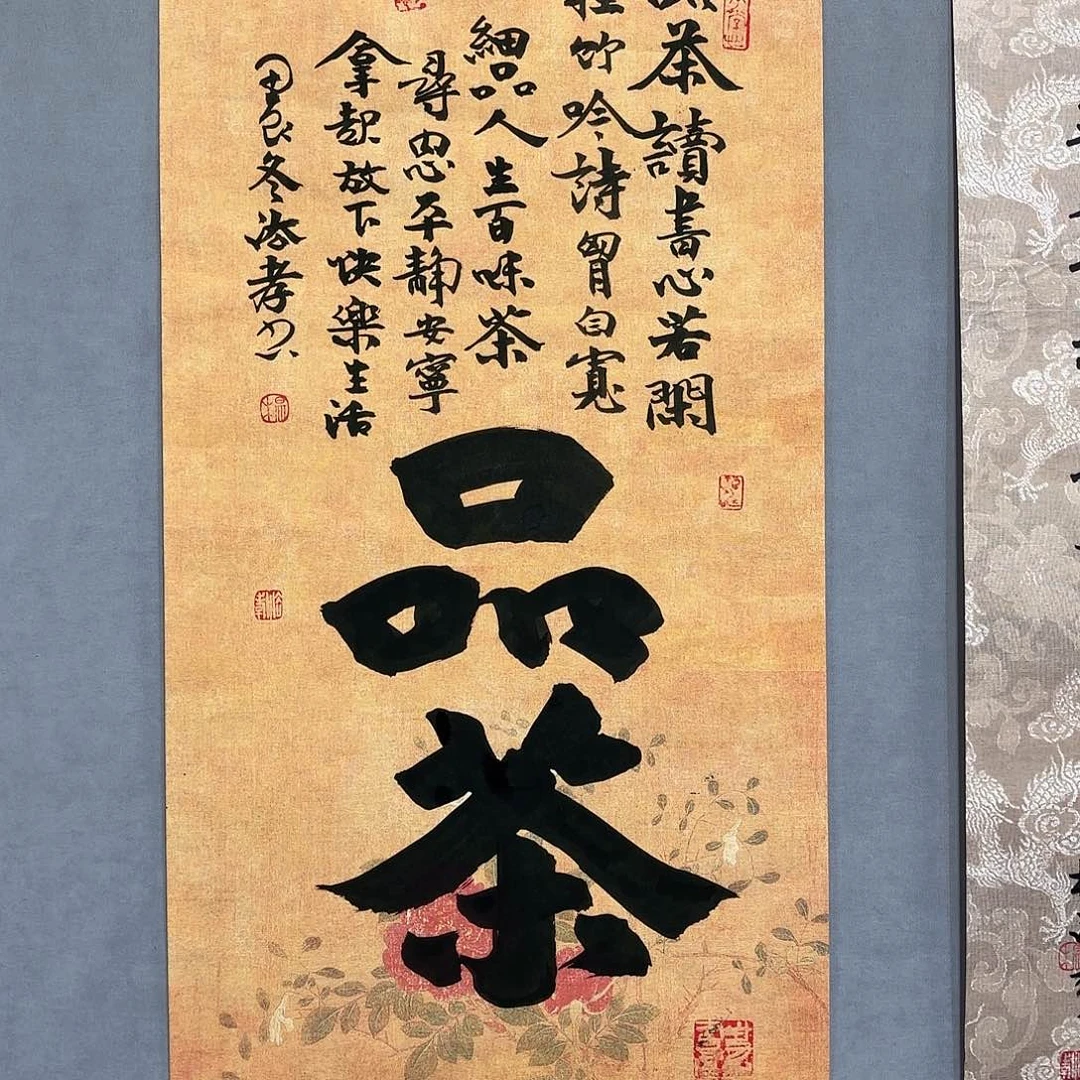 茶讀書心若閑
竹吟詩胷自寬
細品人生百味茶
尋思平靜安寧
拿起放下快樂生活
甲辰冬添孝书
品茶